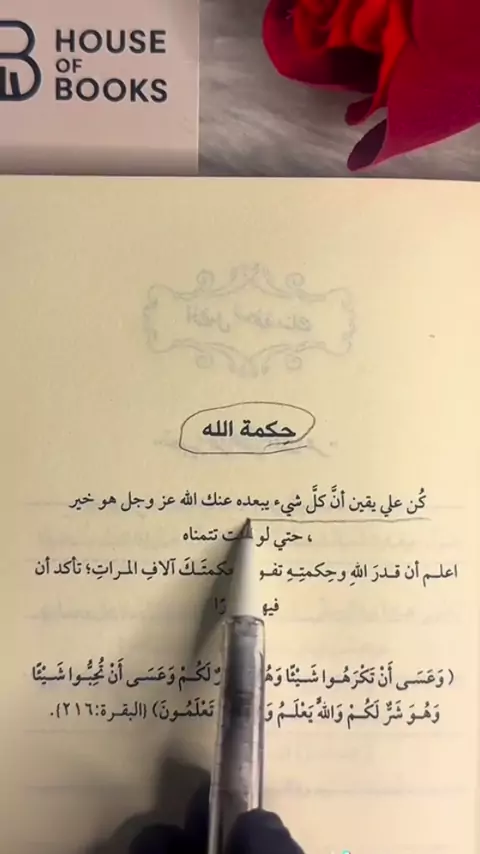 HOUSE
OF
BOOKS
حِكمة الله
كُن علي يقين أنَّ كلَّ شيء يبعده عنك الله عز وجل هو خير
، حتي لو تتمناه
اعلـم أن قـدرَ اللهِ وحِكمتِـهِ آلافِ المـراتِ؛ تأكد أن
( وَعَسَـى أَنْ تَكْرَهُـوا شَـيْئًا لَكُـمْ وَعَسَـى أَنْ تُحِبُّـوا شَـيْئًا
وَهُـوَ شَرٌّ لَكُـمْ وَاللهُ يَعْلَـمُ تَعْلَمُـونَ) (البقـرة:٢١٦).